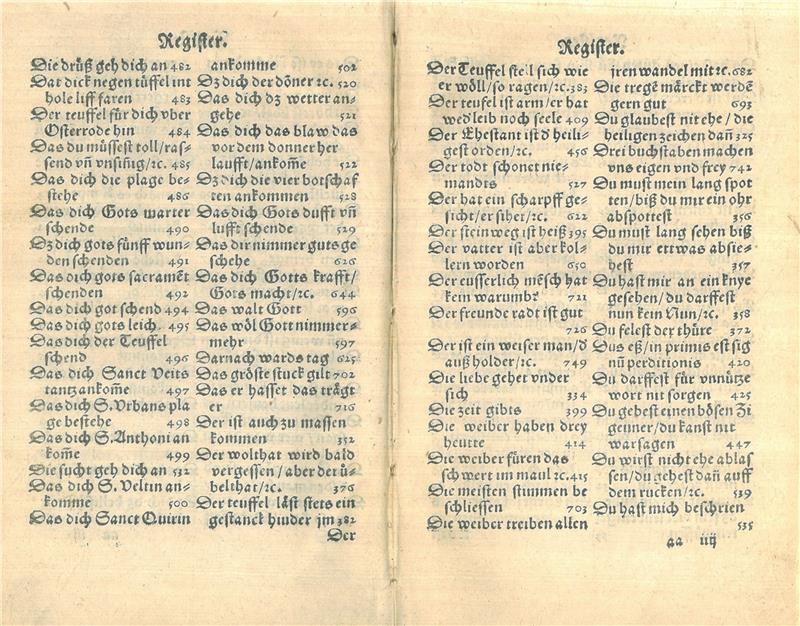 Register.
Die drüß geh dich an 482
Dat dick negen tüffel int
hole liff faren 483
Der teuffel für dich vber
Osterrode hin 484
Das du müssest toll/ras-
send vñ vnsinig/ꝛc. 485
Das dich die plage be-
stehe 486
Das dich Gots marter
schende 490
Dz dich gots fünff wun-
den schenden 491
Das dich gots sacramẽt
schenden 492
Das dich got schend 494
Das dich gots leich. 495
Das dich der Teuffel
schend 496
Das dich Sanct Veits
tantz ankom̃e 497
Das dich S. Vrbans pla
ge bestehe 498
Das dich S. Anthoni an
kom̃e 499
Die sucht geh dich an 532
Das dich S. Veltin an-
komme 500
Das dich Sanct Quirin
ankomme 502
Dz dich der döner ꝛc. 520
Das dich dz wetter an-
gehe 521
Das dich das blaw das
vor dem donner her
laufft/ankom̃e 522
Dz dich die vier botschaf
ten ankommen 528
Das dich Gots dufft vñ
lufft schende 529
Das dir nimmer guts ge
schehe 626
Das dich Gotts krafft/
Gots macht/ꝛc. 644
Das walt Gott 596
Das wöl Gott nimmer-
mehr 597
Darnach wards tag 625
Das gröste stuck gilt 702
Das er hasset das trägt
er 716
Der ist auch zu massen
kommen 352
Der wolthat wird bald
vergessen/aber der ü-
belthat/ꝛc. 376
Der teuffel läst stets ein
gestanck hinder jm 382
Der
Register.
Der Teuffel stell sich wie
er wöll/so ragen/ꝛc. 383
Der teufel ist arm/er hat
wed leib noch seele 409
Der Ehestant ist d heili-
gest orden/ꝛc. 456
Der todt schonet nie-
mandts 527
Der hat ein scharpff ge-
sicht/er sihet/ꝛc. 622
Der steinweg ist heiß 395
Der vatter ist aber kol-
lern worden 650
Der eusserlich mẽsch hat
kein warumb? 721
Der freunde radt ist gut
726
Der ist ein weiser man/d
auß holder/ꝛc. 749
Die liebe gehet vnder
sich 334
Die zeit gibts 399
Die weiber haben drey
heutte 414
Die weiber füren das
schwert im maul ꝛc. 415
Die meisten stimmen be
schliessen 703
Die weiber treiben allen
jren wandel mit ꝛc. 682
Die tregẽ märckt werdẽ
gern gut 693
Du glaubest nit ehe/die
heiligen zeichen dañ 325
Drei buchstaben machen
vns eigen vnd frey 742
Du must mein lang spot
ten/biß du mir ein ohr
abspottest 356
Du must lang sehen biß
du mir ettwas absie-
hest 357
Du hast mir an ein knye
gesehen/du darffest
nun kein Nun/ꝛc. 358
Du felest der thüre 372
Dus eß/in primis est sig
nũ perditionis 420
Du darffest für vnnütze
wort nit sorgen 425
Du gehest einen bösen Zi
geiner/du kanst nit
warsagen 447
Du wirst nicht ehe ablas
sen/du gehest dañ auff
dem rucken/ꝛc. 539
Du hast mich beschrien
535
aa iiij